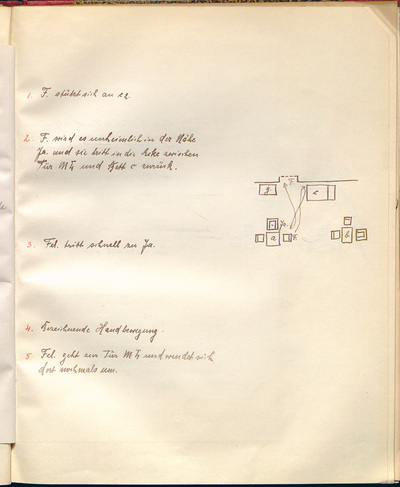 1. F. stützt sich an
2. F. wird es unheimlich in der Nähe
Ja. und sie tritt in die Ecke zwischen
Tür M und Bett c zurück.
F.
g.
c
Ja.
a
F.
b
3. Fel. tritt schnell zu Ja.
4. Bezeichnende Handbewegung.
5. Fel. geht zur Tür M und wendet sich
dort nochmals um.